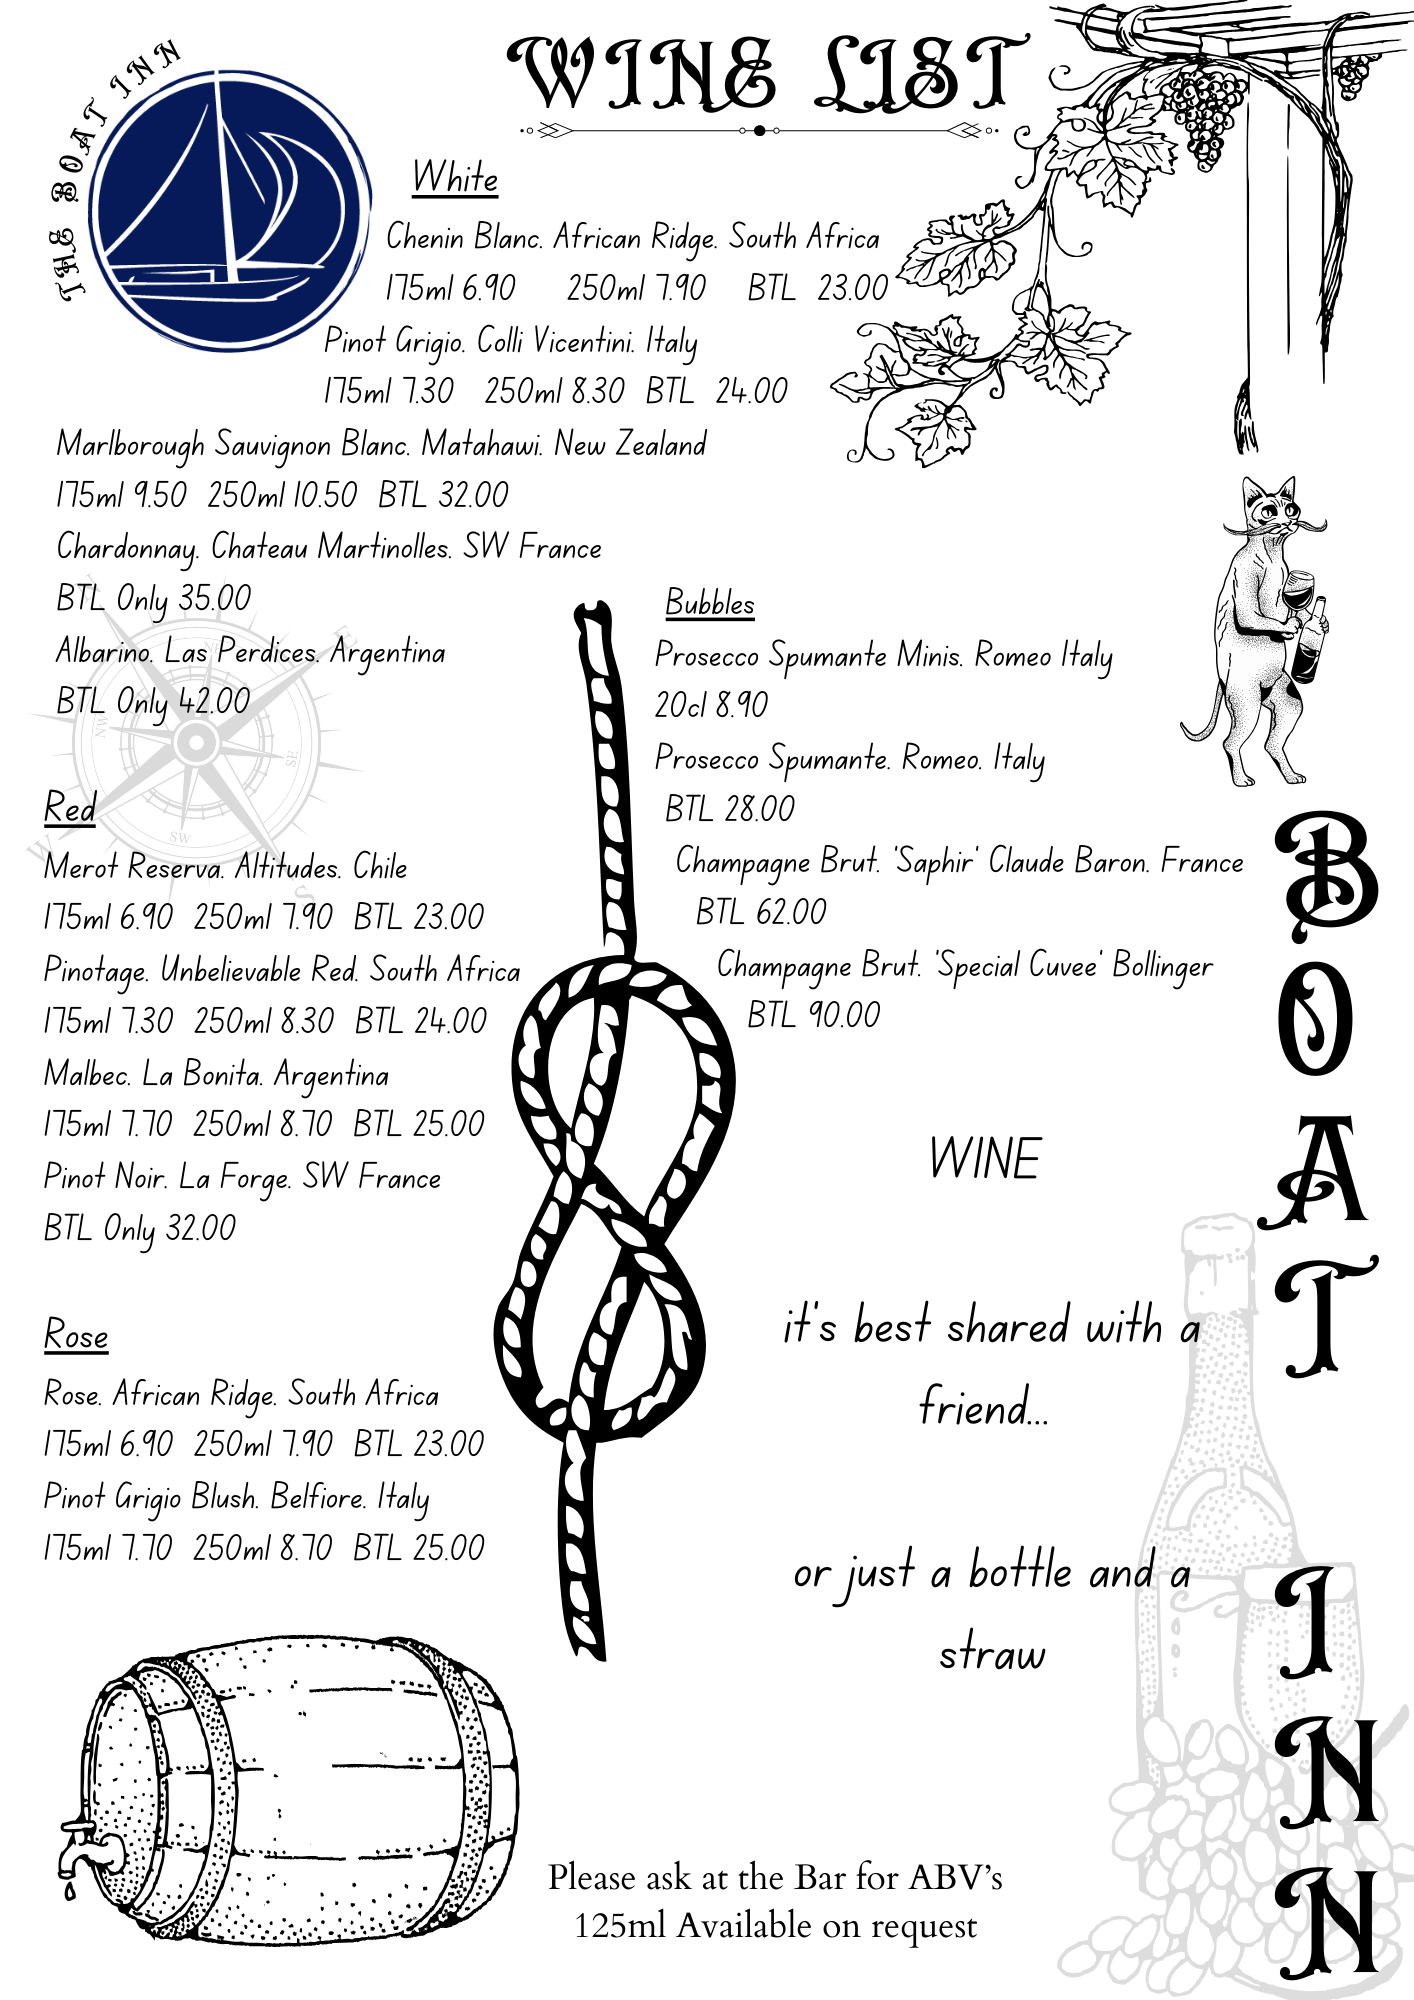 THE BOAT INN
WINE LIST
White
Chenin Blanc. African Ridge. South Africa
175ml 6.90 250ml 7.90 BTL 23.00
Pinot Grigio. Colli Vicentini. Italy
175ml 7.30 250ml 8.30 BTL 24.00
Marlborough Sauvignon Blanc. Matahawi. New Zealand
175ml 9.50 250ml 10.50 BTL 32.00
Chardonnay. Chateau Martinolles. SW France
BTL Only 35.00
Albarino. Las Perdices. Argentina
BTL Only 42.00
Red
Merot Reserva. Altitudes. Chile
175ml 6.90 250ml 7.90 BTL 23.00
Pinotage. Unbelievable Red. South Africa
175ml 7.30 250ml 8.30 BTL 24.00
Malbec. La Bonita. Argentina
175ml 7.70 250ml 8.70 BTL 25.00
Pinot Noir. La Forge. SW France
BTL Only 32.00
Rose
Rose. African Ridge. South Africa
175ml 6.90 250ml 7.90 BTL 23.00
Pinot Grigio Blush. Belfiore. Italy
175ml 7.70 250ml 8.70 BTL 25.00
Bubbles
Prosecco Spumante Minis. Romeo Italy
20cl 8.90
Prosecco Spumante. Romeo. Italy
BTL 28.00
Champagne Brut. 'Saphir' Claude Baron. France
BTL 62.00
Champagne Brut. 'Special Cuvee' Bollinger
BTL 90.00
WINE
it's best shared with a
friend...
or just a bottle and a
straw
Please ask at the Bar for ABV's
125ml Available on request
BOAT INN
E
SE
S
SW
W
NW